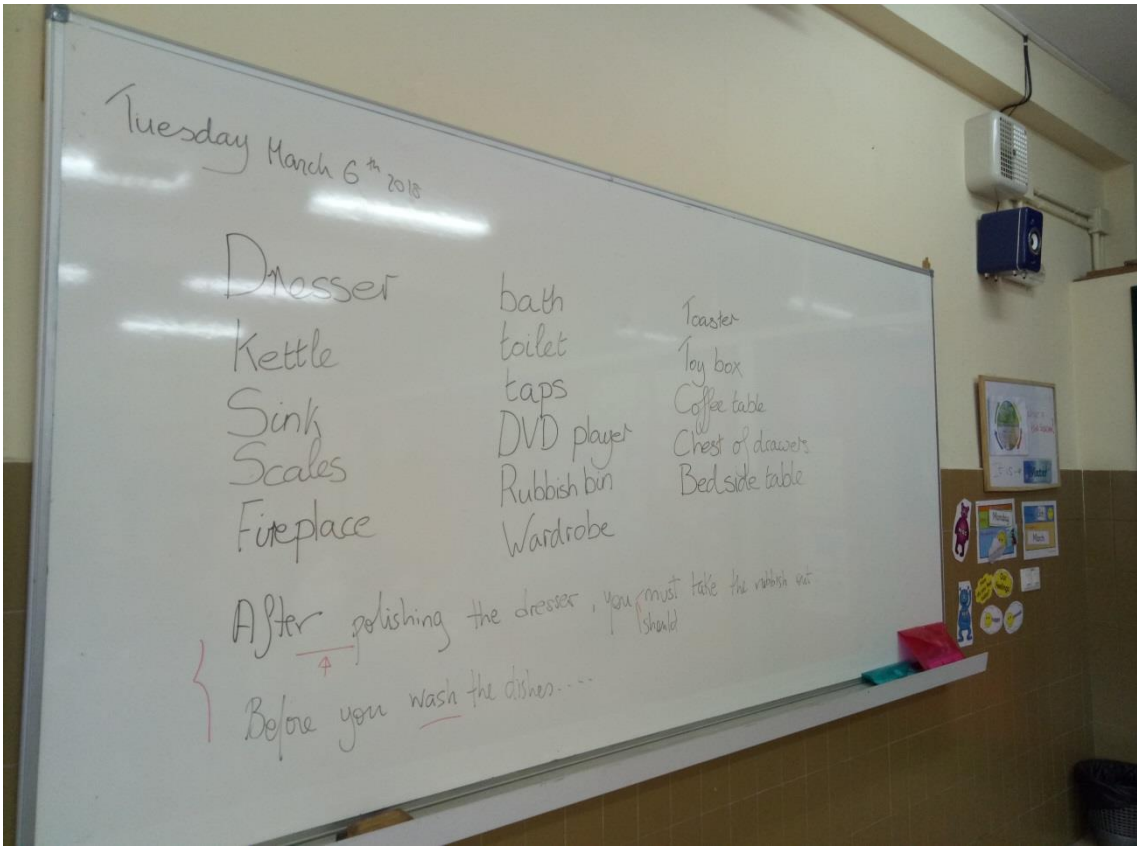 Tuesday March 6th 2018
Dresser
Kettle
Sink
Scales
Fireplace
bath
toilet
taps
DVD player
Rubbish bin
Wardrobe
Toaster
Toy box
Coffee table
Chest of drawers
Bedside table
After polishing the dresser, you must take the rubbish out
should
Before you wash the dishes....
Monday
March